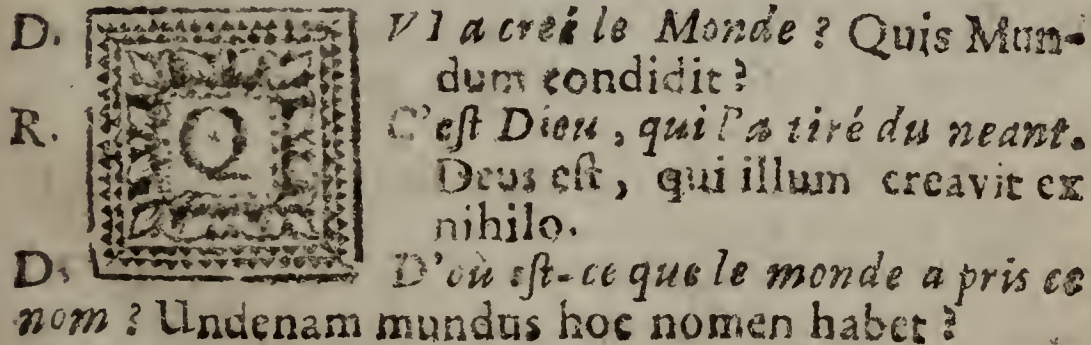 D. QVI a creé le Monde ? Quis Mun-
dum condidit ?
R. C'eſt Dieu, qui l'a tiré du neant.
Deus eſt, qui illum creavit ex
nihilo.
D. D'où eſt-ce que le monde a pris ce
nom ? Undenam mundus hoc nomen habet ?